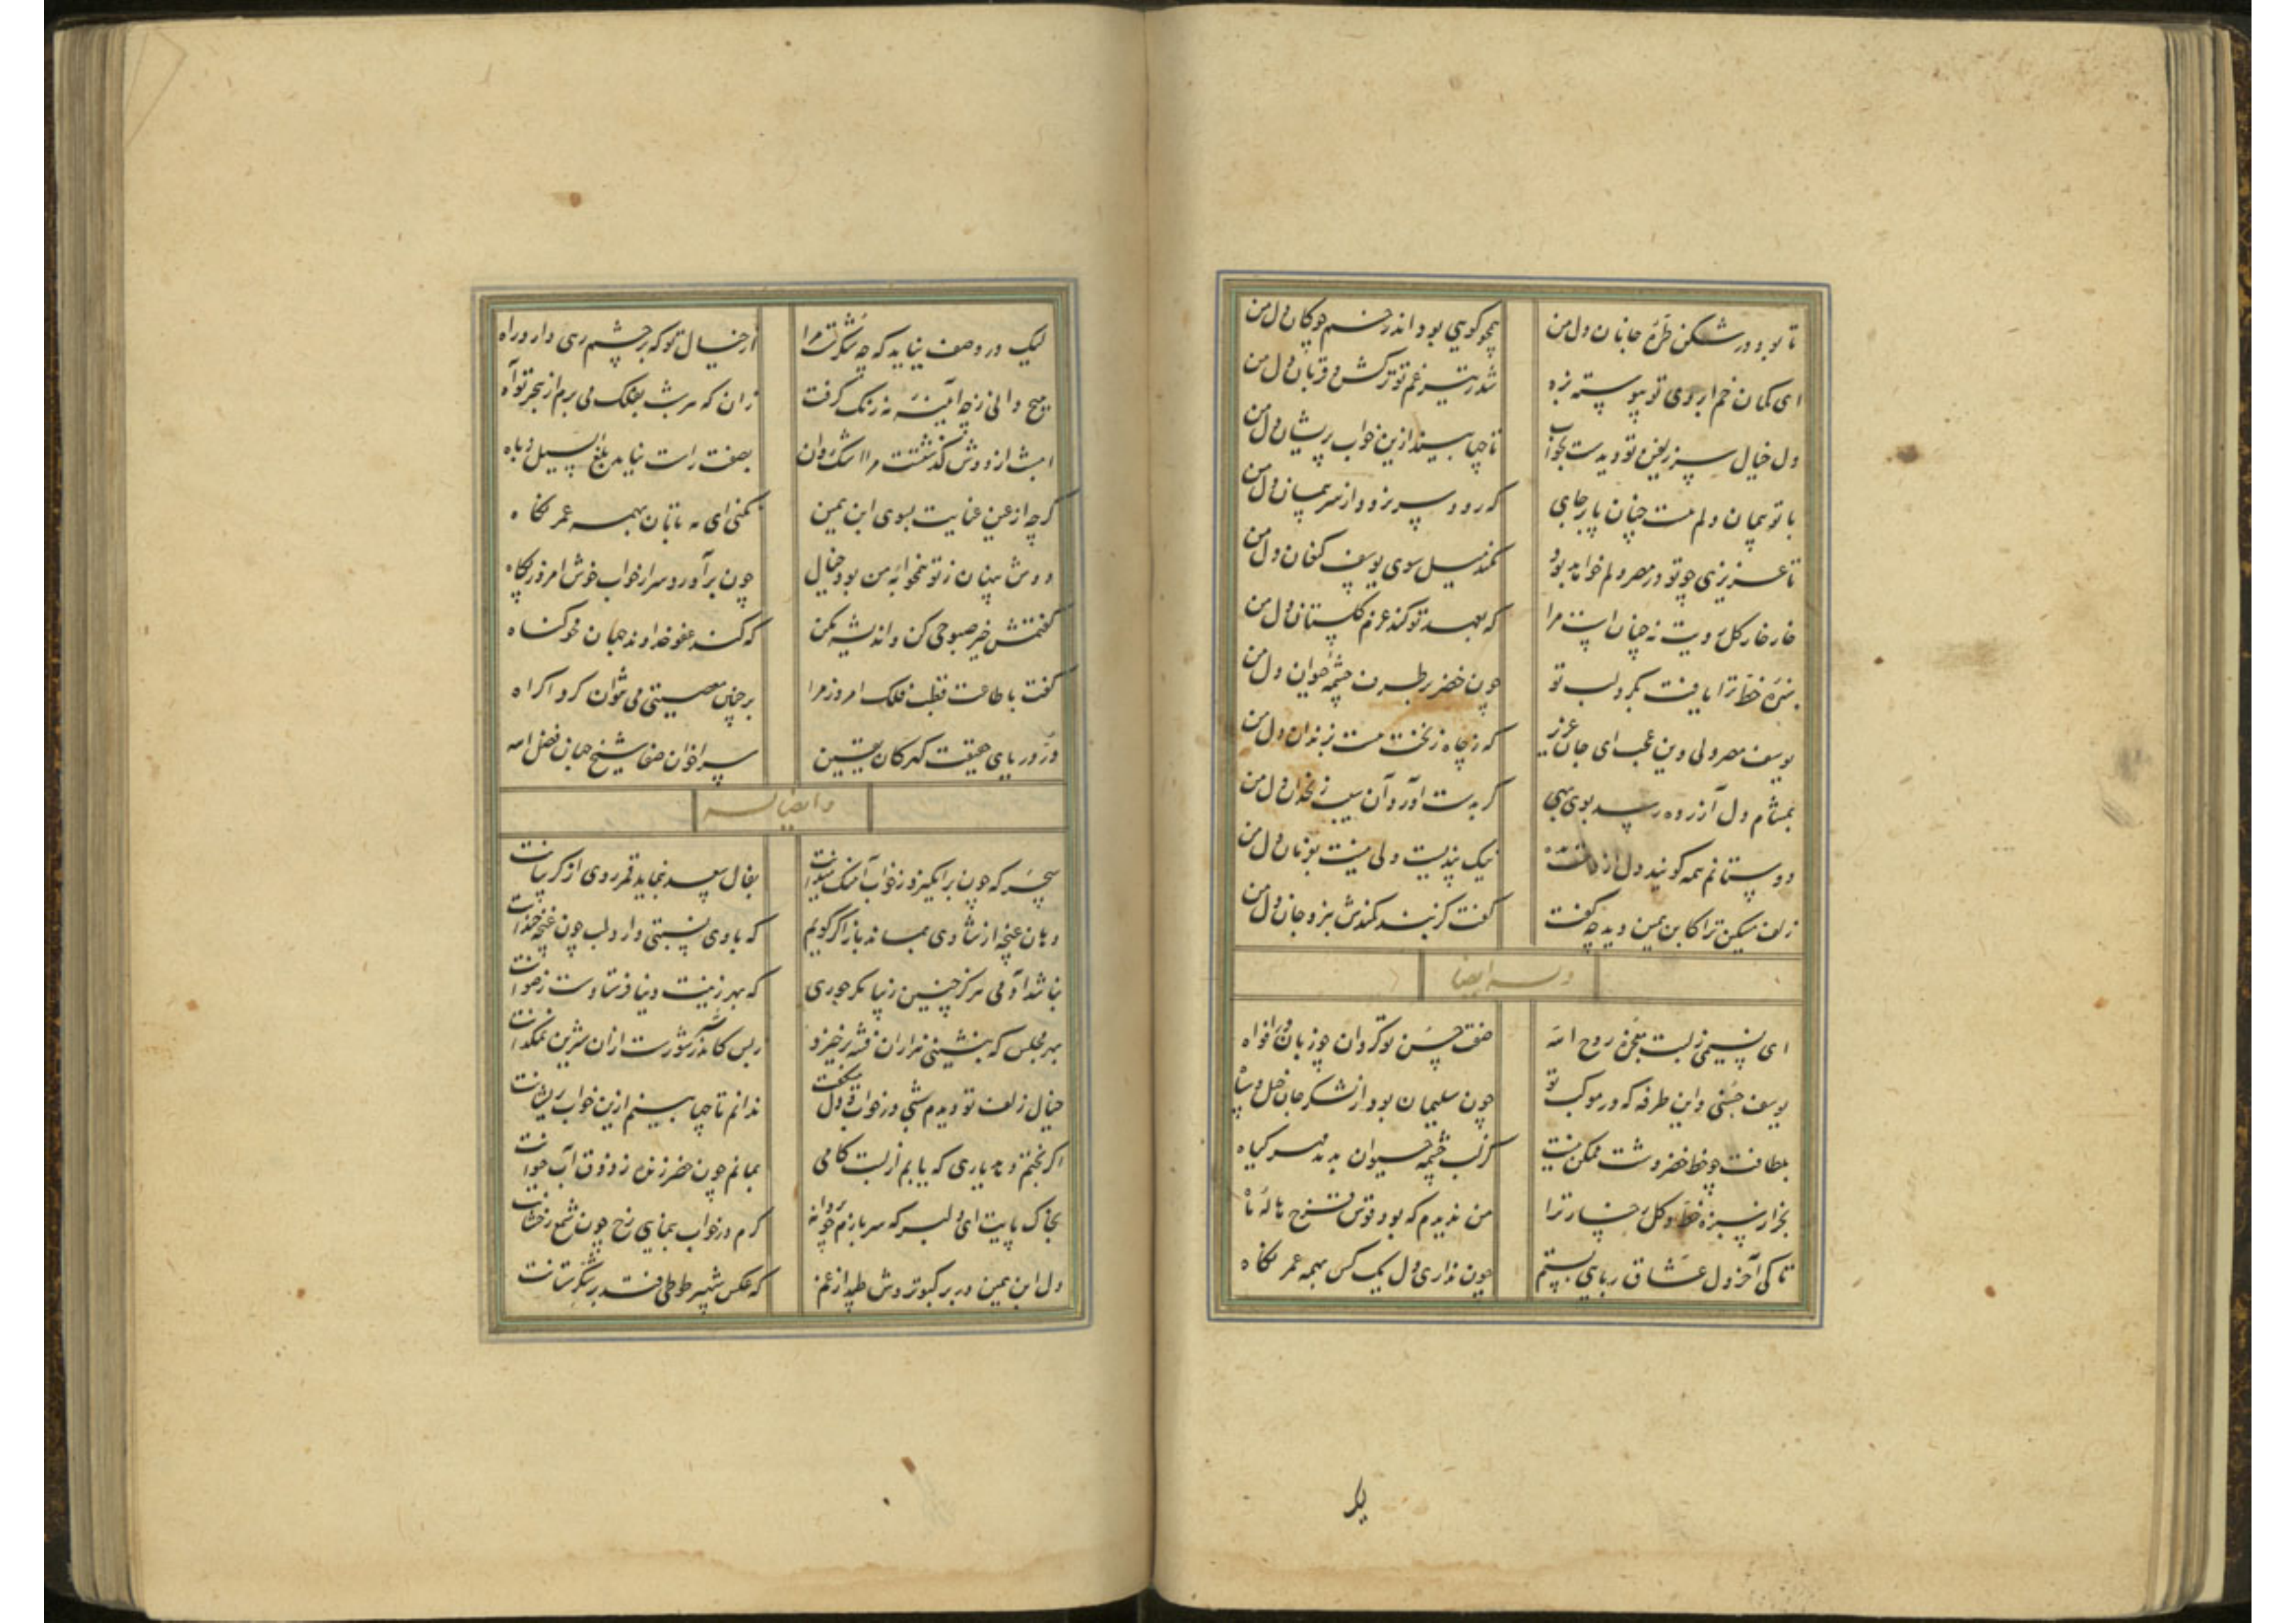 تا بود در شکن طره جانان دل من
همچو گویی بود اندر خم چوکان دل من
ای کمان خم ابروی تو پیوسته بزه
شد ز تیر غم تو ترکش و قربان دل من
دل خیال سر زلفین تو دیدست بخواب
تا چها بیند ازین خواب پریشان دل من
با تو پیمان دلم هست چنان پابرجای
که رود سر نرود از سر پیمان دل من
تا عزیزی چو تو در مصر دلم خواهد بود
نکند میل سوی یوسف کنعان دل من
خار خار کل رویت نه چنانست مرا
که بعهد تو کند عزم کلستان دل من
سبزه خط ترا یافت بکرد لب تو
چون خضر بر طرف چشمه حیوان دل من
یوسف مصر دلی وین عجب ای جان عزیز
که ز چاه زنخت هست بزندان دل من
بمشام دل آزرده رسد بوی بهی
کر بدست آورد آن سیب زنخدان دل من
دوستانم همه کویند دل از
نیک پندیست ولی نیست بفرمان دل من
زلف مسکین ترا کابن یمین دید چه گفت
گفت کز بند کمندش نبرد جان دل من
وله ایضا
ای نسیمی ز لبت معجزه روح الله
صفت حسن تو کردان چو زبان در افواه
یوسف حسنی و این طرفه که در موکب تو
چون سلیمان بود از لشکر جان خیل و سپاه
بلطافت چو خط خضروشت ممکن نیست
کز لب چشمه حیوان بدمد مهر کیاه
بجز از سبزه خط و کل رخسار ترا
من ندیدم که بود قوس قزح هاله ماه
تا کی آخر دل عشاق ربایی بستم
چون نداری دل یک کس همه عمر نکاه
لیک در وصف نیاید که چه شکرست مرا
از خیال تو که بر چشم رهی دارد راه
هیچ دانی ز چه آیینه مه زنک کرفت
زان که هر شب بفلک می برم از هجر تو آه
امشب از دوش کذشتست مرا اشک روان
بصفت راست نیاید بلغ السیل زباه
کرچه از عین عنایت بسوی ابن یمین
نکنی ای مه تابان بهمه عمر نکاه
دوش پنهان ز تو همخوابه من بود خیال
چون برآورد سر از خواب خوش امروز پکاه
کفتمش خیز صبوحی کن و اندیشه مکن
که کند عفو خداوند جهان محو کناه
کفت با طاعت قطب فلک امروز مرا
بر چنین معصیتی می نتوان کرد اکراه
در دریای حقیقت کهر کان یقین
سر اخوان صفا شیخ جهان فضل الله
و ایضا له
سحر که چون برانکیزد ز خواب آهنک
بفال سعد بنماید قمر روی از کریبانت
دهان غنچه از شادی بماند باز اکر کویم
که با وی نسبتی دارد لب چون غنچه خندانت
نباشد آدمی هرکز چنین زیبا مکر حوری
که بهر زینت دنیا فرستادست رضوانت
بهر مجلس که بنشینی هزاران فتنه برخیزد
ز بس کاندر سر شورست ازان شیرین نمکدانت
خیال زلف تو دیدم شبی در خواب و دل میکفت
ندانم تا چها بینم ازین خواب پریشانت
اکر بختم دهد یاری که یابم از لبت کامی
بمانم چون خضر زنده ز ذوق آب حیوانت
بخاک پایت ای دلبر که سر بازم چو پروانه
کرم در خواب بنمایی رخ چون شمع رخشانت
دل ابن یمین در بر کبوتروش طپد از غم
که عکس شهپر طوطی فتد بر شکرستانت